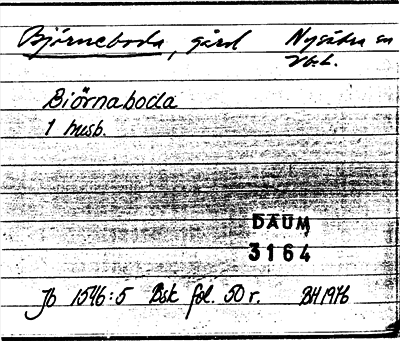 Björneboda, gård Nysätra sn
Vb.l.
Biörnaboda
1 husb.
DAUM
3164
Jb 1546:5 Bsk fol. 50 r. BH 1976